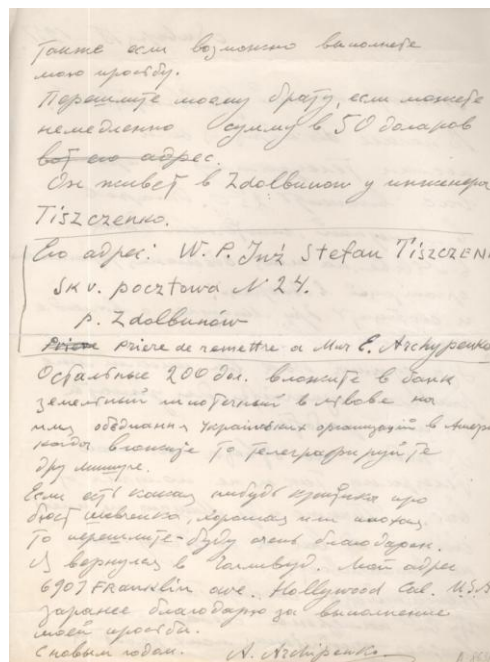 Также если возможно выполнете
мою просьбу.
Перешлите моему брату, если можете
немедленно сумму в 50 доларов
вот его адрес.
Он живет в Zdolbunow у инженера
Tiszczenko.
Его адрес: W. P. Inż Stefan TISZCZEN
Skv. pocztowa N 24.
p. Zdolbunów
Priere Priere de remettre a Mur E. Archypenko
Остальные 200 дол. вложите в банк
земельный ипотечный в Львове на
имя обеднання Українських організацій в Амери
когда вложите то телеграфируйте
дру мишуге.
Если есть какая нибудь критика про
бюст Шевченка, хорошая или плохая
то перешлите - буду очень благодарен.
Я вернулся в Голливуд. Мой адрес
6907 Franklin ave. Hollywood Cal. U.S.A
заранее благодарю за выполнение
моей просьбы.
С новым годом. A. Archipenko